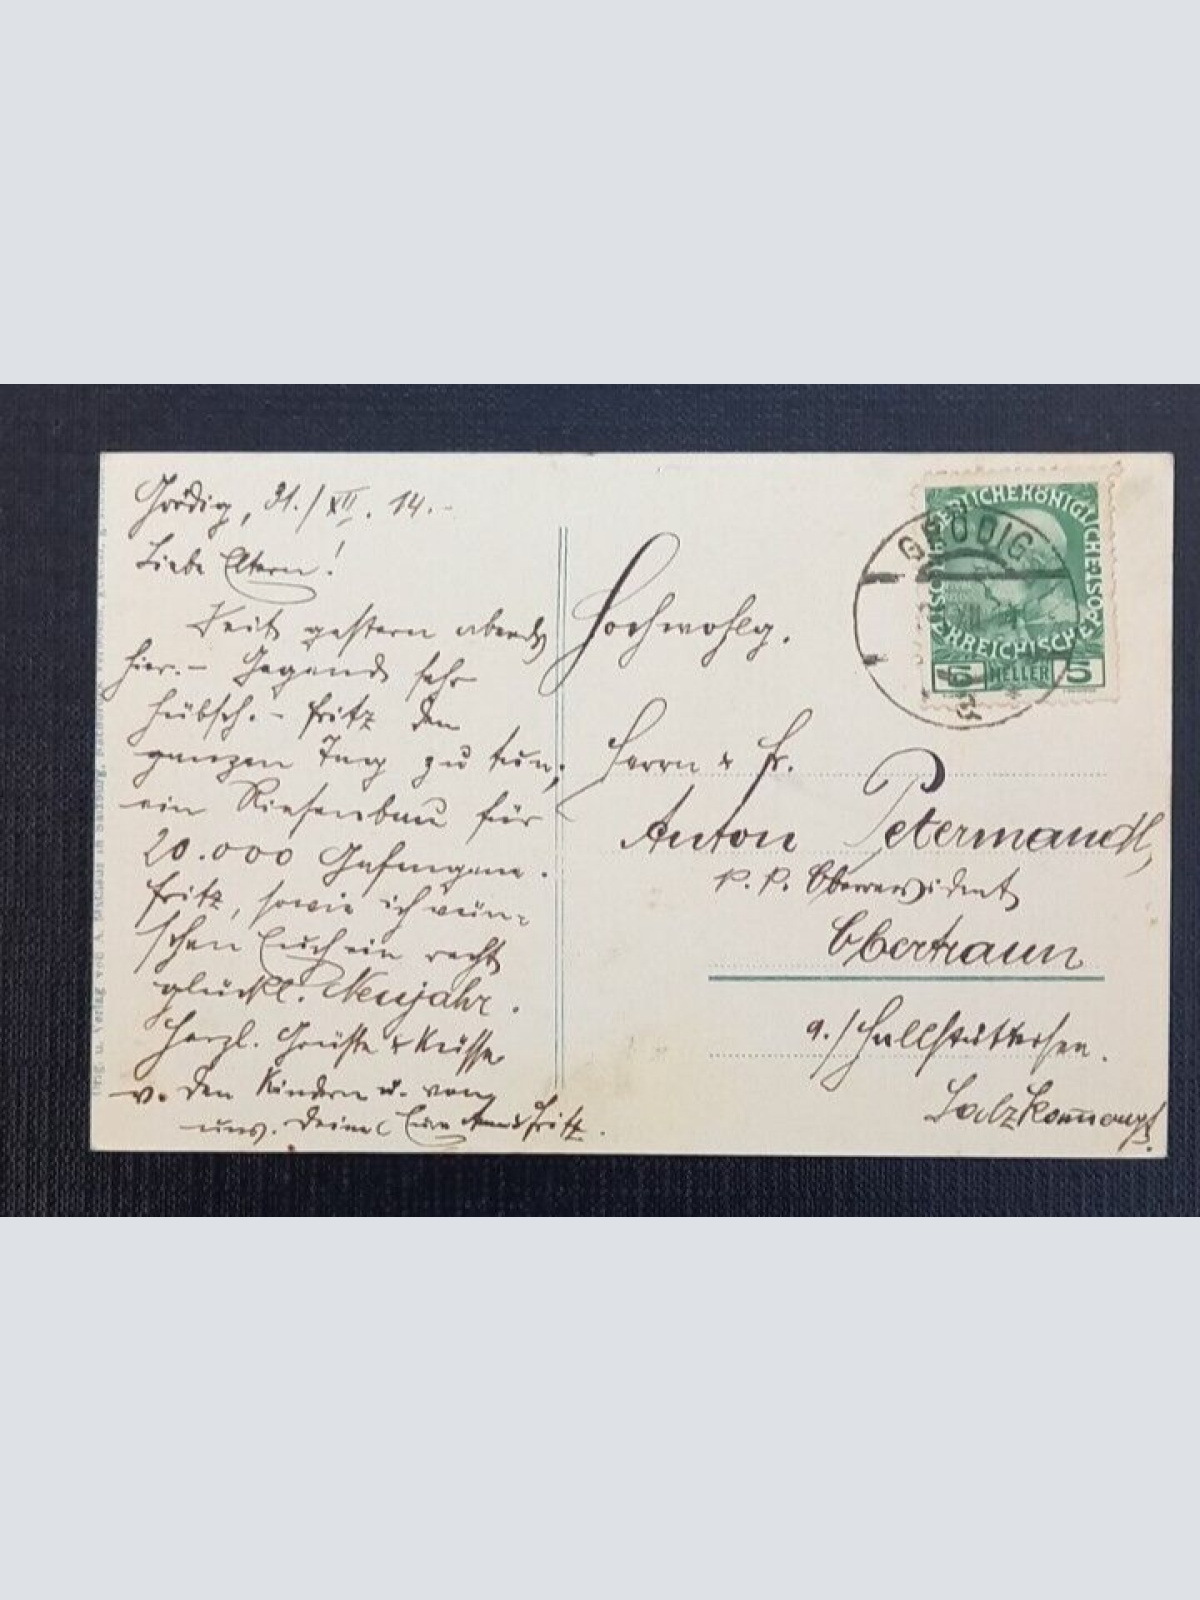 Grödig, 31./XII. 14.-
Liebe Eltern!
Seit gestern abends
hier. - Gegend sehr
hübsch. - Fritz den
ganzen Tag zu tun;
ein Riesenbau für
20.000 Gefangene.
Fritz, sowie ich wün-
schen Euch ein recht
glückl. Neujahr.
Herzl. Grüsse & Küsse
v. den Kindern u. von
uns. Eure
Hochwohlg.
Herrn & Fr.
Anton Petermandl,
k. k. Oberrevident
Obertraun
a./Hallstättersee.
Salzkammergut.
GRÖDIG
XII
KAISERLICHE KÖNIGLICHE
ÖSTERREICHISCHE POST
5 HELLER 5